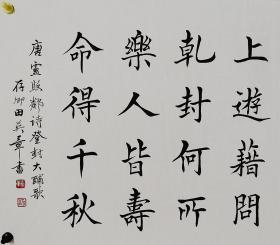 上遊藉問
乾封何所
樂人皆壽
命得千秋
唐盧照鄰诗登封大酺歌
存卿田英章書